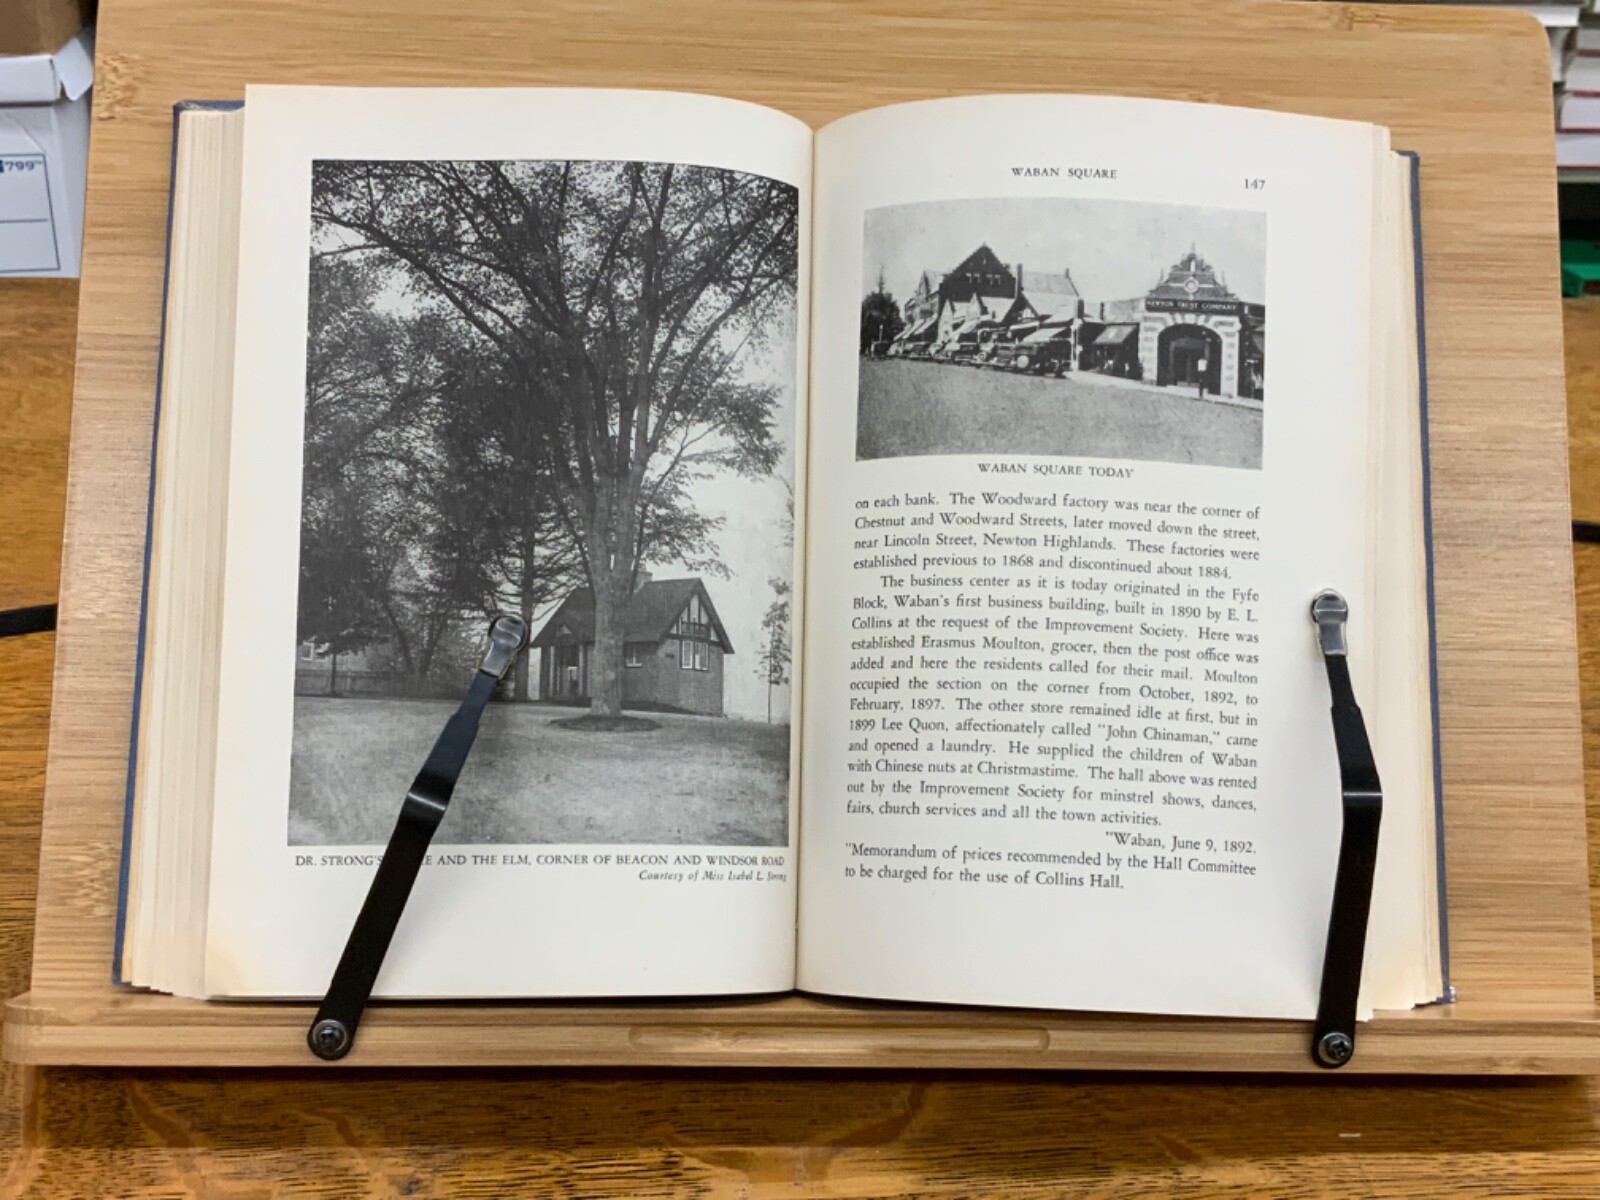 799
DR. STRONG'S AND THE ELM, CORNER OF BEACON AND WINDSOR ROAD
Courtesy of Miss Isabel L. Strong
WABAN SQUARE
147
NEWTON TRUST COMPANY
WABAN SQUARE TODAY
on each bank. The Woodward factory was near the corner of
Chestnut and Woodward Streets, later moved down the street,
near Lincoln Street, Newton Highlands. These factories were
established previous to 1868 and discontinued about 1884.
The business center as it is today originated in the Fyfe
Block, Waban's first business building, built in 1890 by E. L.
Collins at the request of the Improvement Society. Here was
established Erasmus Moulton, grocer, then the post office was
added and here the residents called for their mail. Moulton
occupied the section on the corner from October, 1892, to
February, 1897. The other store remained idle at first, but in
1899 Lee Quon, affectionately called "John Chinaman," came
and opened a laundry. He supplied the children of Waban
with Chinese nuts at Christmastime. The hall above was rented
out by the Improvement Society for minstrel shows, dances,
fairs, church services and all the town activities.
"Waban, June 9, 1892.
"Memorandum of prices recommended by the Hall Committee
to be charged for the use of Collins Hall.